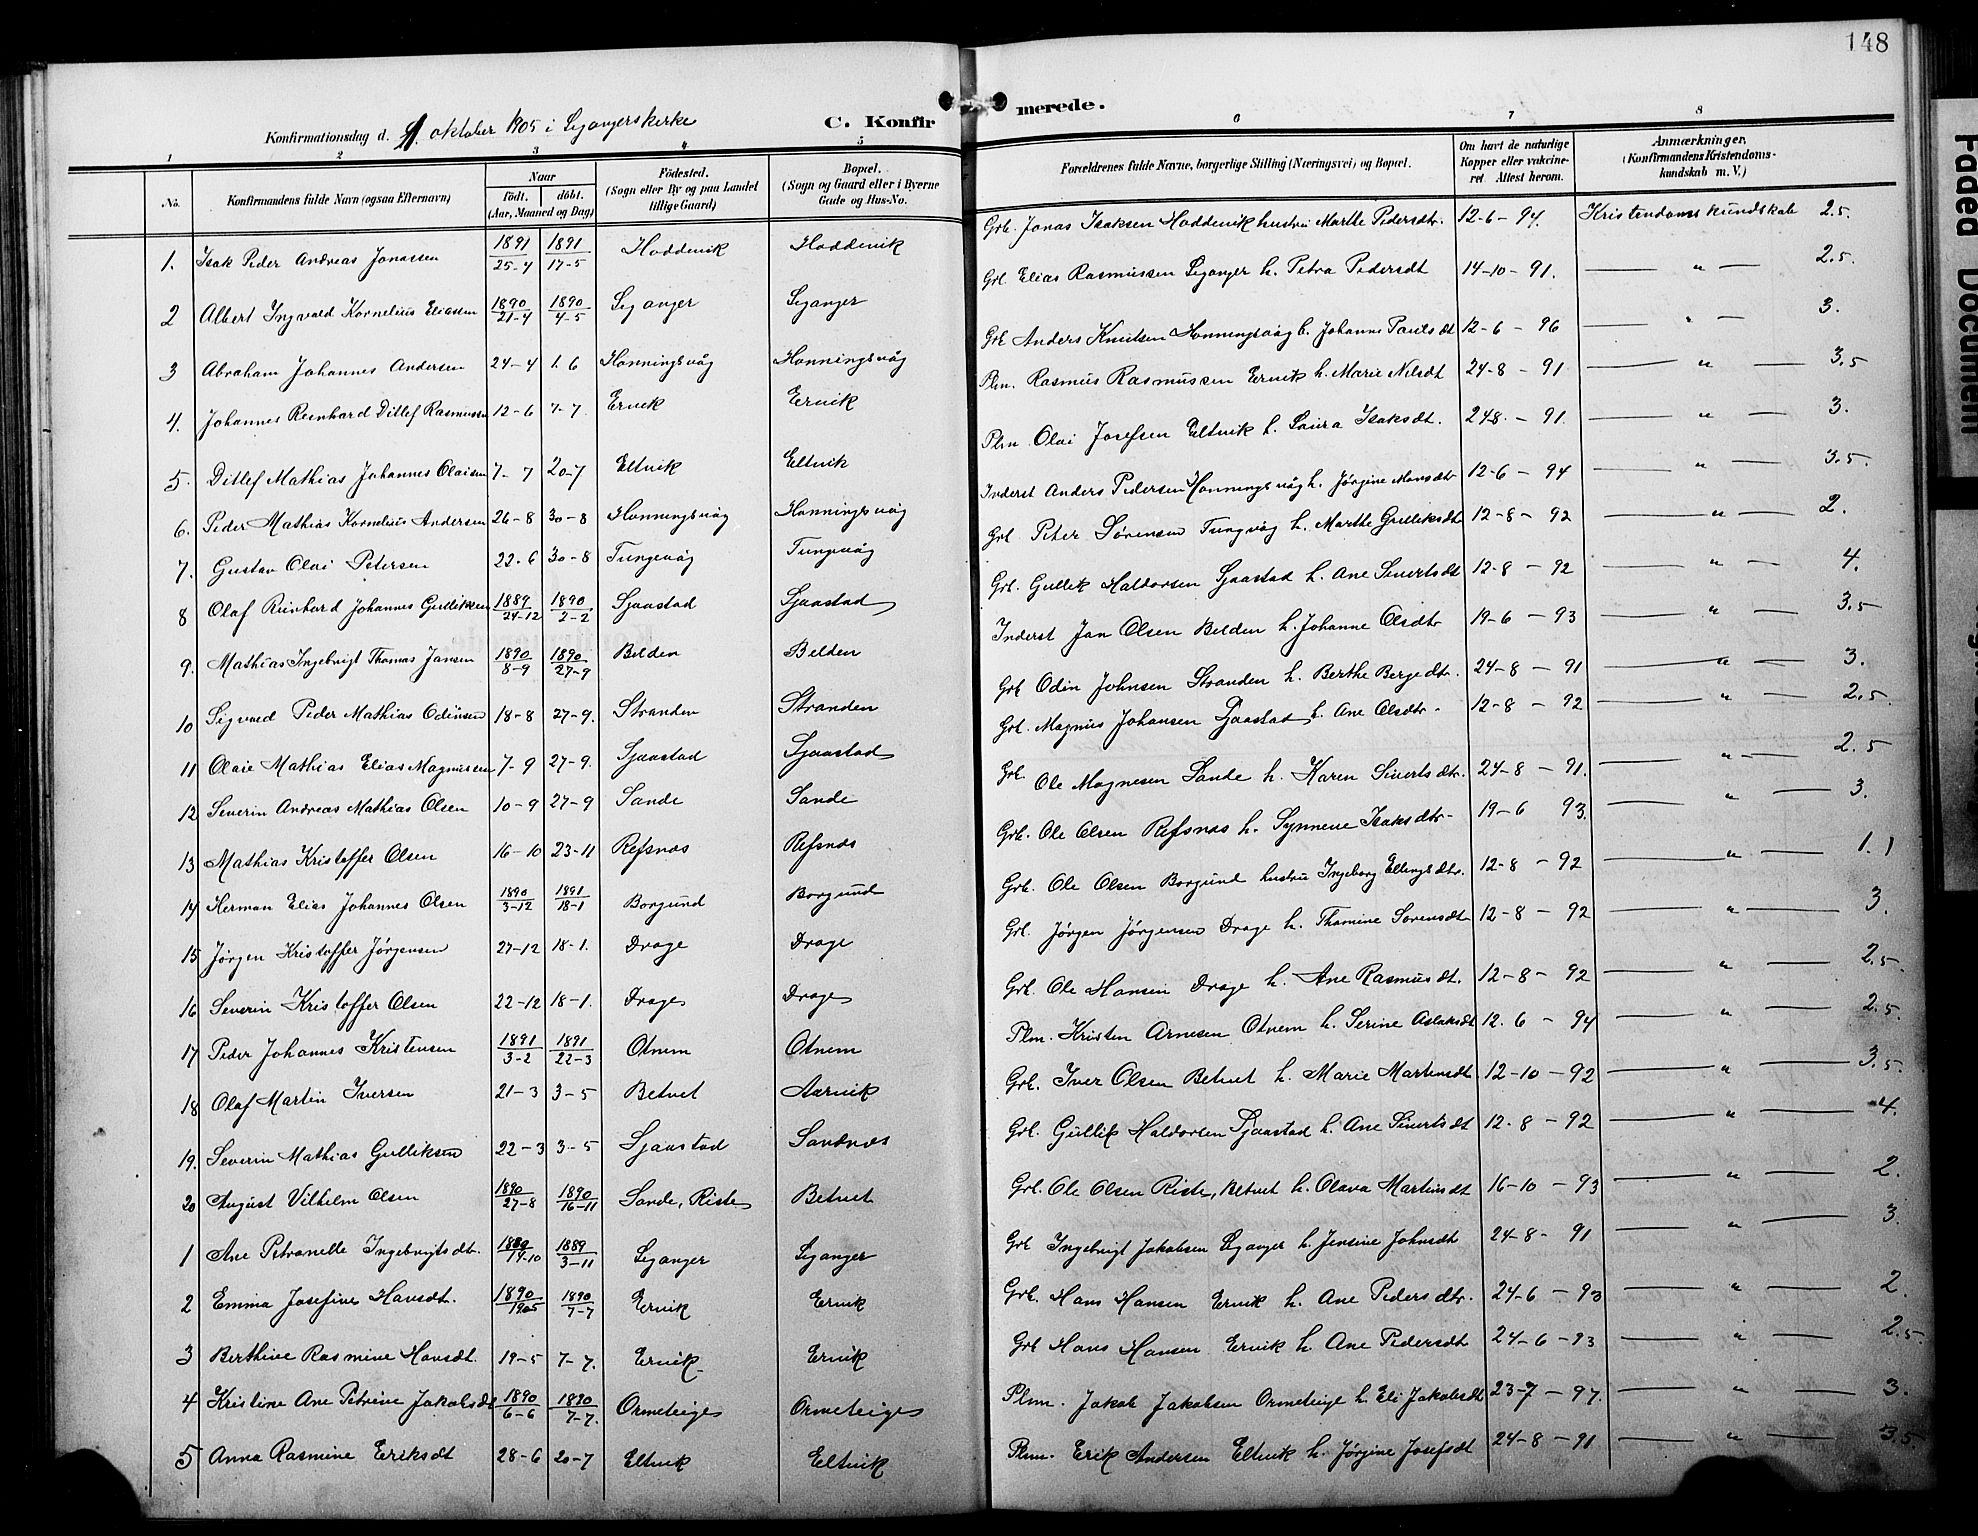 148
C. Konfirmerede.
Konfirmationsdag d. 1. oktober 1905 i Leganger kirke
1 2 3 4 5 6 7 8
No. Konfirmandens fulde Navn (ogsaa Efternavn) Naar födt. döbt. (Aar, Maaned og Dag) Födested. (Sogn eller By og paa Landet tillige Gaard) Bopæl. (Sogn og Gaard eller i Byerne Gade og Hus-No. Forældrenes fulde Navne, borgerlige Stilling (Næringsvei) og Bopæl. Om havt de naturlige Kopper eller vakcineret Attest herom. Anmærkninger, (Konfirmandens Kristendomskundskab m. V.)
1. Isak Peder Andreas Jonassen 1891 25-4 1891 17-5 Hoddevik Hoddevik Grb. Jonas Isaksen Hoddevik hustru Marthe Pedersdtr. 12-6-94. Kristendomskundskab 2.5.
2 Albert Ingvald Kornelius Eliassen 1890 21-4 1890 4-5 Leganger Leganger Grb. Elias Rasmussen Leganger h. Petra Pedersdt 14-10-91. — " — 2.5.
3 Abraham Johannes Andersen 24-4 1.6 Honningsvåg Honningsvåg Grb Anders Knutsen Honningsvåg h. Johanne Paulsdt 12-6-96 — " — 3.
4. Johannes Reinhard Ditlef Rasmussen 12-6 7-7. Ervik Ervik Plm. Rasmus Rasmussen Ervik h. Marie Nilsdt 24-8-91 — " — 3.5
5. Ditlef Mathias Johannes Olaisen 7-7 20-7 Eltvik Eltvik Plm Olai Josefsen Eltvik h. Laura Isaksdt. 24-8-91. — " — 3.
6. Peder Mathias Kornelius Andersen 26-8 30-8 Honningsvåg Honningsvåg Inderst Anders Pedersen Honningsvåg h. Jørgine Monsdtr 12-6-94 — " — 3.5.
7. Gustav Olai Petersen 22-6 30-8 Tungevåg Tungevåg Grb Peter Sørensen Tungvåg h. Marthe Gulliksdt 12-8-92 — " — 2.
8 Olaf Reinhard Johannes Gulliksen 1889 24-12 1890 2-2 Sjaastad Sjaastad Grb. Gullik Haldorsen Sjaastad h. Ane Sivertsdt 12-8-92 — " — 4.
9. Mathias Ingebrigt Thomas Jansen 1890 8-9 1890 27-9 Belden Belden Inderst Jan Olsen Belden h. Johanne Olsdtr 19-6-93 — " — 3.5
10 Sigvard Peder Mathias Odinsen 18-8 27-9. Stranden Stranden Grb Odin Johnsen Stranden h. Berthe Bergedtr. 24-8-91 — " — 3.
11 Olaie Mathias Elias Magnussen 7-9 27-9. Sjaastad Sjaastad Grb. Magnus Johansen Sjaastad h. Ane Olsdtr. 12-8-92 — " — 2.5.
12 Severin Andreas Mathias Olsen 10-9 27-9 Sande Sande Grb. Ole Magnesen Sande h. Karen Sivertsdtr. 24-8-91. — " — 2.5
13 Mathias Kristoffer Olsen 16-10 23-11 Refsnæs Refsnæs Grb. Ole Olsen Refsnæs h. Synneve Isaksdtr. 19-6 93. — " — 3.
14 Herman Elias Johannes Olsen 1890 3-12 1891 18-1 Borgund Borgund Grb. Ole Olsen Borgund hustru Ingeborg Ellingsdtr. 12-8-92 — " — 1.1
15 Jørgen Kristoffer Jørgensen 27-12 18-1. Drage Drage Grb. Jørgen Jørgensen Drage h. Thomine Sørensdt 12-8-92 — " — 3.
16 Severin Kristoffer Olsen 22-12 18-1. Drage Drage Grb. Ole Hansen Drage h. Ane Rasmusdt. 12-8-92 — " — 2.5.
17 Peder Johannes Kristensen 1891 3-2 1891 22-3 Otnem Otnem Plm. Kristen Arnesen Otnem h. Serine Aslaksdt 12.6-94 — " — 2.5.
18 Olaf Martin Iversen 21-3 3-5 Betvet Aarvik Grb. Iver Olsen Betvet h. Marie Martinsdt 12-10-92 — " — 3.5.
19. Severin Mathias Gulliksen 22-3 3-5 Sjaastad Sandnæs Grb. Gullik Haldorsen Sjaastad h. Ane Sivertsdt 12-8-92 — " — 4.
20 August Vilhelm Olsen 1890 27-8 1890 16-11 Sande, Riste Betvet Grb. Ole Olsen Riste, Betvet h. Olava Martinsdt 16-10-93 — " — 2.
1 Ane Petronelle Ingebrigtsdtr. 1889 14-10 1889 3-11 Leganger Leganger Grb Ingebrigt Jakobsen Leganger h. Jensine Johnsdt 24-8-91 — " — 3.
2 Emma Josefine Hansdt. 1890 19-5 1890 7-7 Ervik Ervik Grb. Hans Hansen Ervik h. Ane Pedersdtr. 24-6-93 — " — 2.
3 Berthine Rasmine Hansdt. 19-5 7-7. Ervik Ervik Grb Hans Hansen Ervik h. Ane Pedersdt 24-6-93 — " — 2.5
4 Kristine Ane Petrine Jakobsdt 1890 6-6 1890 7-7. Ormeteige Ormeteige Plm. Jakob Jakobsen Ormeteige h. Eli Jakobsdt 23-7-97. — " — 3.
5 Anna Rasmine Eriksdt 28-6 20-7 Eltvik Eltvik Plm. Erik Andersen Eltvik h. Jørgine Josefsdt 24-8-91 — " — 3.5
Faded Document